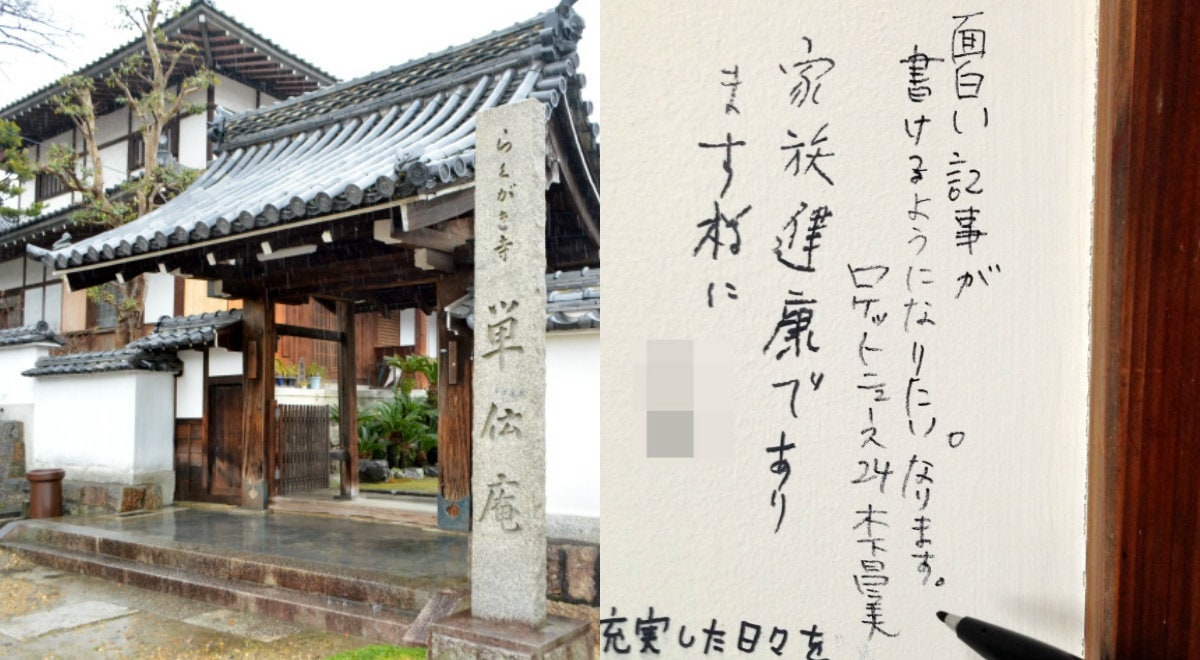 らくがき寺 単伝庵
面白い記事が
書けるようになりたい。なります。
ロケットニュース24 木下昌美
家族健康であり
ます様に
充実した日々を